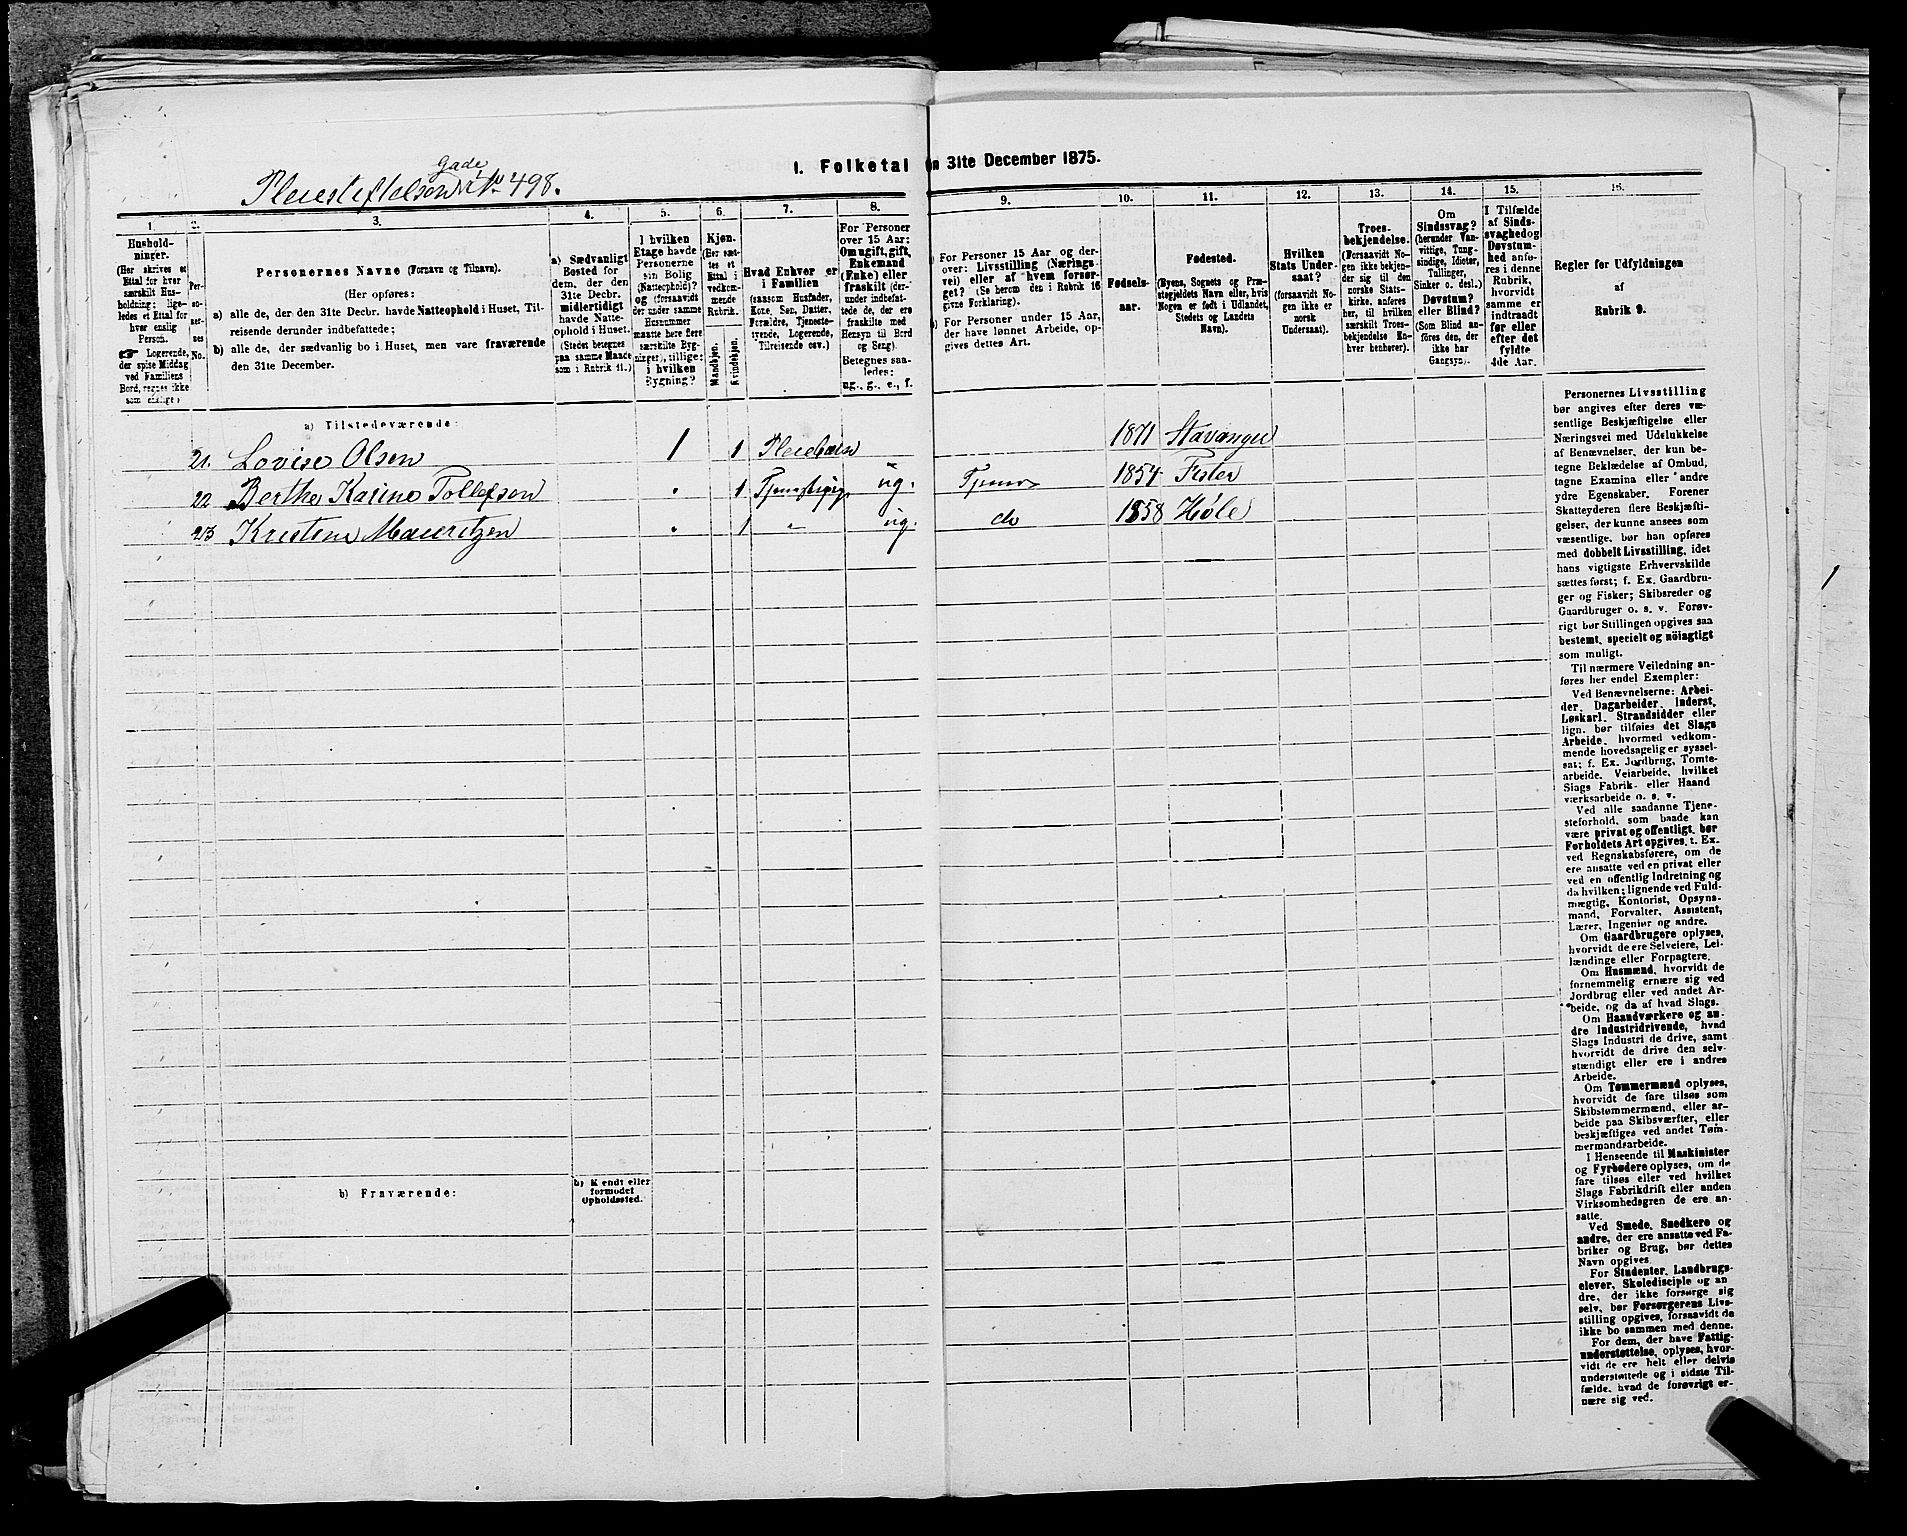 Gade
Pleiestiftelsen No 498.
1. Folketal
n 31te December 1875.
1.
2.
3.
4.
5.
6.
7.
8.
9.
10.
11.
12.
13.
14.
15.
16.
Hushold-
ninger.
(Her skrives et
Ettal for hver
særskilt Hus-
holdning; lige-
ledes et Ettal for
hver enslig
Person.
☞ Logerende,
der spise Middag
ved Familiens
Bord, regnes ikke
som enslige)
Per-
so-
ner-
nes
No.
Personernes Navne (Fornavn og Tilnavn).
(Her opføres:
a) alle de, der den 31te Decbr. havde Natteophold i Huset, Til-
reisende derunder indbefattede;
b) alle de, der sædvanlig bo i Huset, men vare fraværende
den 31te December.
a) Sædvanligt
Bosted for
dem, der den
31te Decbr.
midlertidigt
havde Natte-
ophold i Huset.
(Stedet betegnes
paa samme Maade
som i Rubrik 11.)
I hvilken
Etage havde
Personerne
sin Bolig
(Natteophold)?
og (forsaavidt
der under samme
Husnummer
maatte være flere
særskilte Byg-
ninger), tillige:
i hvilken
Bygning?
Kjøn.
(Her sæt-
tes et
Ettal i
vedkom-
mende
Rubrik.
Mandkjøn.
Kvindekjøn.
Hvad Enhver er
i Familien
(saasom Husfader,
Kone, Søn, Datter,
Forældre, Tjeneste-
tyende, Logerende,
Tilreisende osv.)
For Personer
over 15 Aar:
Om ugift, gift,
Enkemand
(Enke) eller
fraskilt (der-
under indbefat-
tede de, der ere
fraskilte med
Hensyn til Bord
og Seng).
Betegnes saa-
ledes:
ug., g., e., f.
For Personer 15 Aar og der-
over: Livsstilling (Nærings-
vei) eller af hvem forsør-
get? (Se herom den i Rubrik 16
givne Forklaring).
For Personer under 15 Aar,
der have lønnet Arbeide, op-
gives dettes Art.
Fødsels-
aar.
Fødested.
(Byens, Sognets og Præ-
stegjeldets Navn eller, hvis
Nogen er født i Udlandet,
Stedets og Landets
Navn).
Hvilken
Stats Under-
saat?
(forsaavidt No-
gen ikke er
norsk
Undersaat).
Troes-
bekjendelse.
(Forsaavidt No-
gen ikke bekjen-
der sig til den
norske Stats-
kirke, anføres
her, til hvilken
særskilt Troes-
bekjendelse En-
hver henhører).
Om
Sindssvag?
(herunder Van-
vittige, Tung-
sindige, Idioter,
Tullinger,
Sinker o. desl.)
Døvstum?
eller Blind?
(Som Blind an-
føres den, der
ikke har
Gangsyn).
I Tilfælde
af Sinds-
svaghed og
Døvstum-
hed anfø-
res i denne
Rubrik,
hvorvidt
samme er
indtraadt
før eller
efter det
fyldte
4de Aar.
Regler for Udfyldningen
af
Rubrik 9.
a) Tilstedeværende:
21. Lovise Olsen 1 1 Pleiebarn 1871 Stavanger
22 Berthe Karine Tollefsen „ 1 ug. 1854 Fister
23 „ 1 „ ug. do 1858 Høle
b) Fraværende:
b) Kjendt eller
formodet
Opholdssted.
Personernes Livsstilling
bør angives efter deres væ-
sentlige Beskjæftigelse eller
Næringsvei med Udelukkelse
af Benævnelser, der kun be-
tegne Beklædelse af Ombud,
tegne Examina eller andre
ydre Egenskaber. Forener
Skatteyderen flere Beskjæfti-
gelser, der kunne ansees som
væsentlige, bør han opføres
med dobbelt Livsstilling, idet
hans vigtigste Erhvervskilde
sættes først; f. Ex. Gaardbru-
ger og Fisker; Skibsreder og
Gaardbruger o. s. v. Forøv-
rigt bør Stillingen opgives saa
bestemt, specielt og nöiagtigt
som muligt.
Til nærmere Veiledning an-
føres her endel Exempler:
Ved Benævnelserne: Arbei-
der, Dagarbeider, Inderst,
Løskarl, Strandsidder eller
lign. bør tilføies det Slags
Arbeide, hvormed vedkom-
mende hovedsagelig er syssel-
sat; f. Ex. Jordbrug, Tomte-
arbeide, Veiarbeide, hvilket
Slags Fabrik- eller Haand
værksarbeide o. s. v.
Ved alle saadanne Tjene-
steforhold, som baade kan
være privat og offentligt, bør
Forholdets Art opgives, t. Ex.
ved Regnskabsførere, om de
ere ansatte ved en privat eller
ved en offentlig Indretning og
da hvilken; lignende ved Fuld-
mægtig, Kontorist, Opsyns-
mand, Forvalter, Assistent,
Lærer, Ingeniør og andre.
Om Gaardbrugere oplyses,
hvorvidt de ere Selveiere, Lei-
lændinge eller Forpagtere.
Om Husmænd, hvorvidt de
fornemmelig ernære sig ved
Jordbrug eller ved andet Ar-
beide, og da af hvad Slags.
Om Haandværkere og an-
dre Industridrivende, hvad
Slags Industri de drive, samt
hvorvidt de drive den selv-
stændigt eller ere i andres
Arbeide.
Om Tømmermænd oplyses,
hvorvidt de fare tilsøs som
Skibstømmermænd, eller ar-
beide paa Skibsværfter, eller
beskjæftiges ved andet Tøm-
mermandsarbeide.
I Henseende til Maskinister
og Fyrbødere oplyses, om de
fare tilsøs eller ved hvilket
Slags Fabrikdrift eller anden
Virksomhedsgren de ere an-
satte.
Ved Smede, Snedkere og
andre, der ere ansatte ved Fa-
briker og Brug, bør dettes
Navn opgives.
For Studenter, Landbrugs-
elever, Skoledisciple og an
dre, der ikke forsørge sig
selv, bør Forsørgerens Livs-
stilling opgives, forsaavidt de
ikke bo sammen med denne.
For dem, der have Fattig-
understøttelse, oplyses, hvor-
vidt de ere helt eller delvis
understøttede og i sidste Til-
fælde, hvad de forøvrigt er-
nære sig ved.